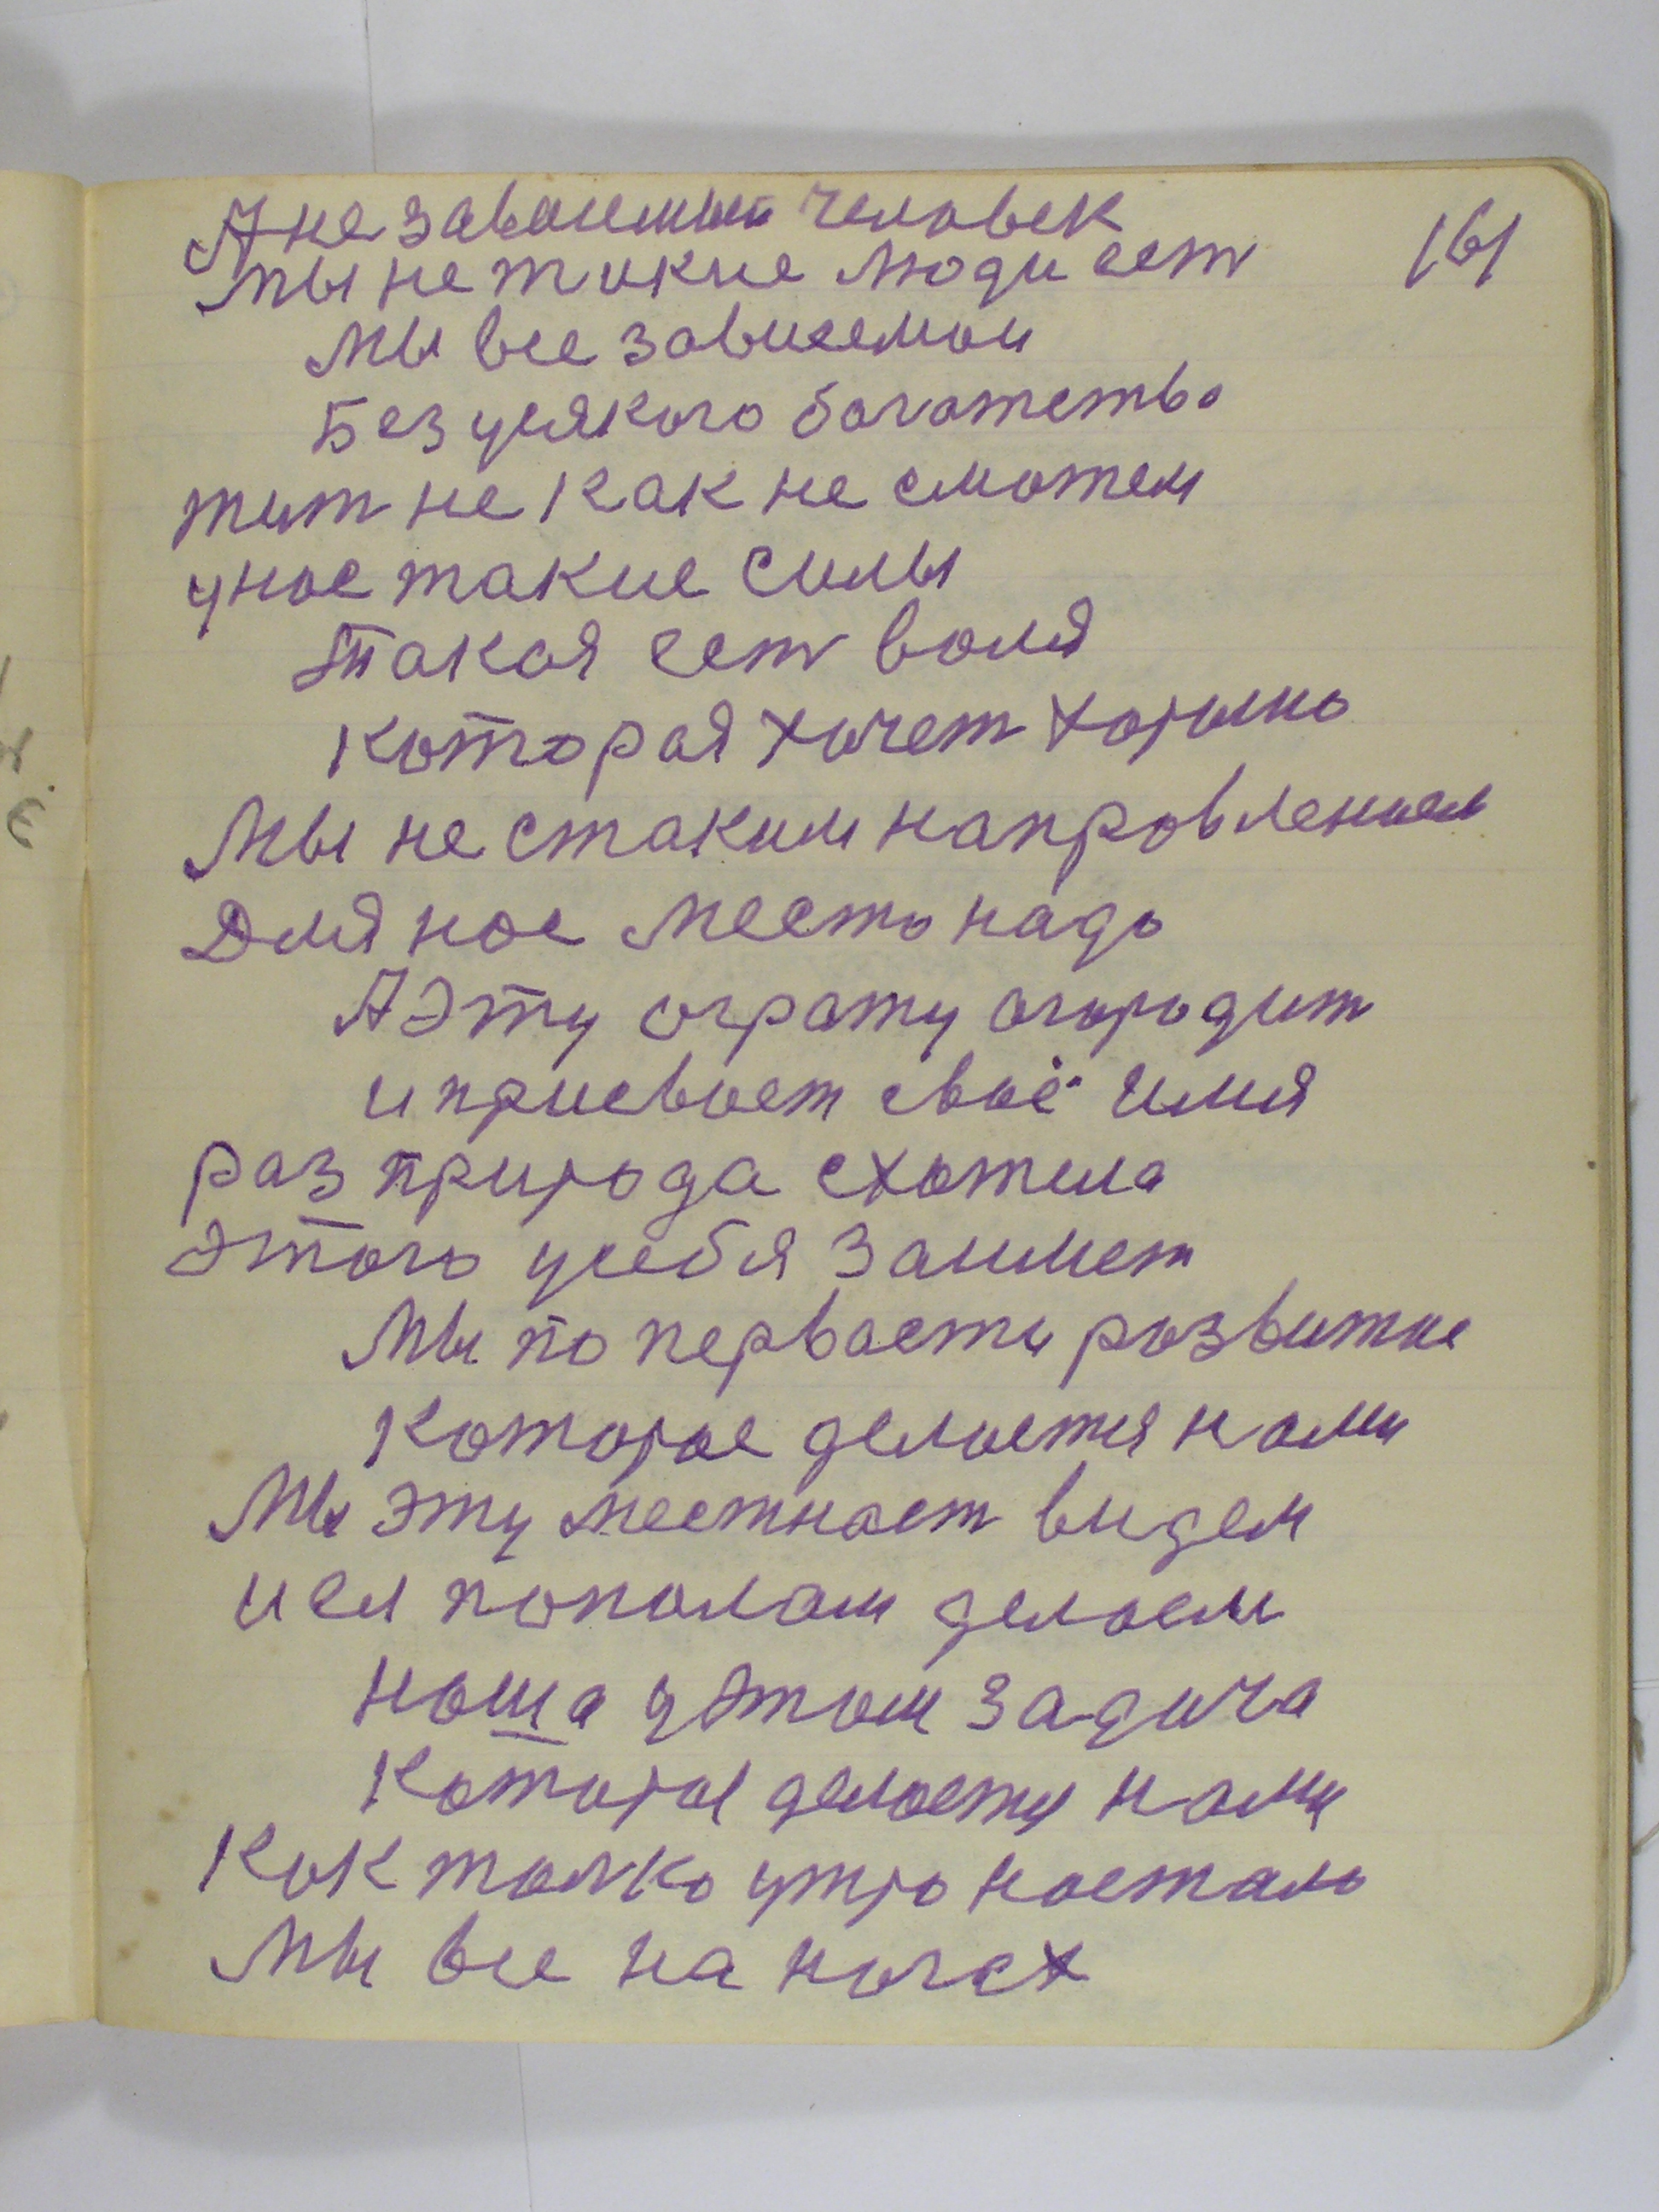 А не зависимый человек
161
Мы не такие люди ест
Мы все зависемои
Без усякого богатства
жит не как не сможем
у нас такие силы
Такая ест воля
которая хочет хорошо
Мы не с таким направлением
Для нас место надо
А эту ограту огородит
и присвоет своё имя
раз природа схотела
этого у себя займет
Мы по первасти развитие
Которое делается нами
Мы эту местност видем
и ея пополам делаем
наша у этом задача
Которая делается нами
Как толко утро настало
Мы все на ногах